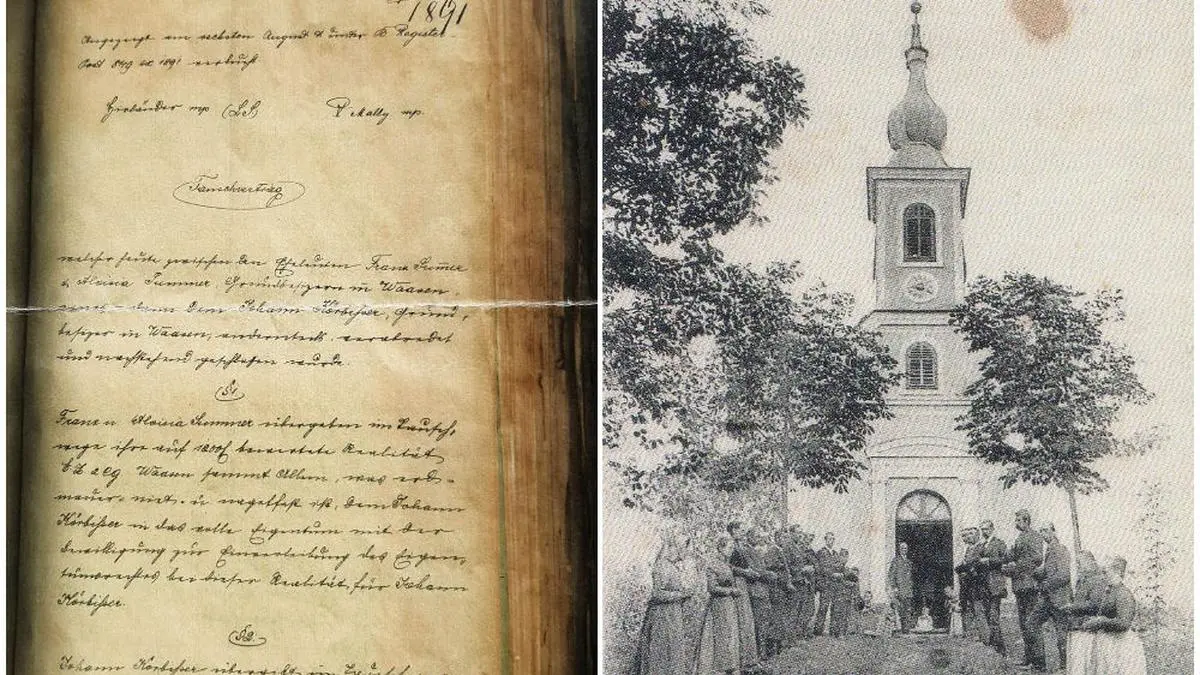 1891
Angezeigt am sechsten August & under B. Register-
Post 849 ex 1891 verbucht
Hirländer mp (LS) Mally mp.
Tauschvertrag
welcher heute zwischen den Eheleuten Franz Summer
& Aloisia Summer, Grundbesitzern in Waasen,
dann dem Johann Körbisser, Grund,
besizer in Waasen, anderntheils verabredet
und nachstehend geschlossen wurde.
§1.
Franz u Aloisia Summer übergeben im Tausch,
wege ihre auf 1200f bewertete Realität
E.Z 2 Cg Waasen sammt Allem, was erd-
mauer- niet- u nagelfest ist, dem Johann
Körbisser in das volle Eigentum mit der
Bewilligung zur Einverleibung des Eigen,
tumsrechtes bei dieser Realität, für Johann
Körbisser.
§2.
Johann Körbisser übergibt im Tausch